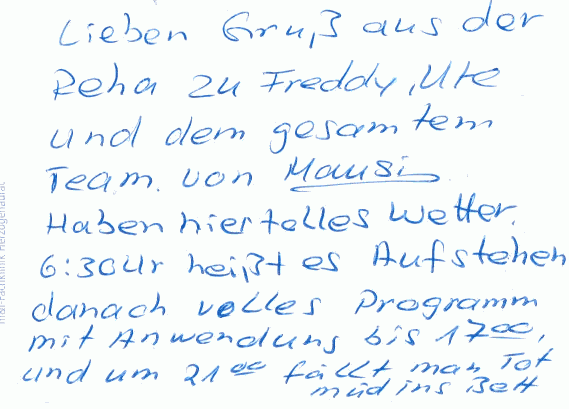 Lieben Gruß aus der
Reha zu Freddy, Ute
und dem gesamtem
Team. von Mausi
Haben hier tolles Wetter.
6:30 Uhr heißt es Aufstehen
danach volles Programm
mit Anwendung bis 17 00,
und um 21 00 fällt man Tot
müd ins Bett
Fachklinik Herzogenaurach